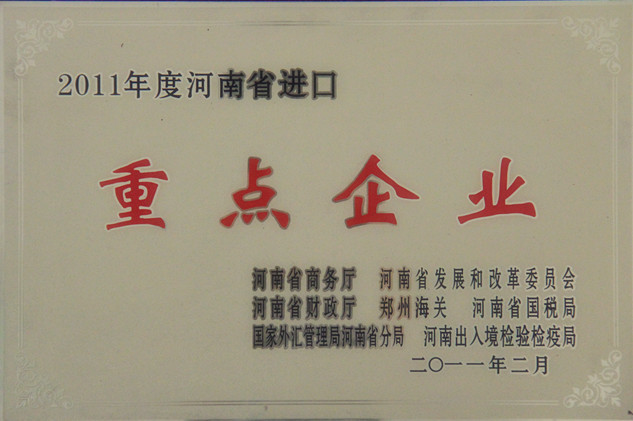 2011年度河南省进口
重点企业
河南省商务厅 河南省发展和改革委员会
河南省财政厅 郑州海关 河南省国税局
国家外汇管理局河南省分局 河南出入境检验检疫局
二〇一一年二月